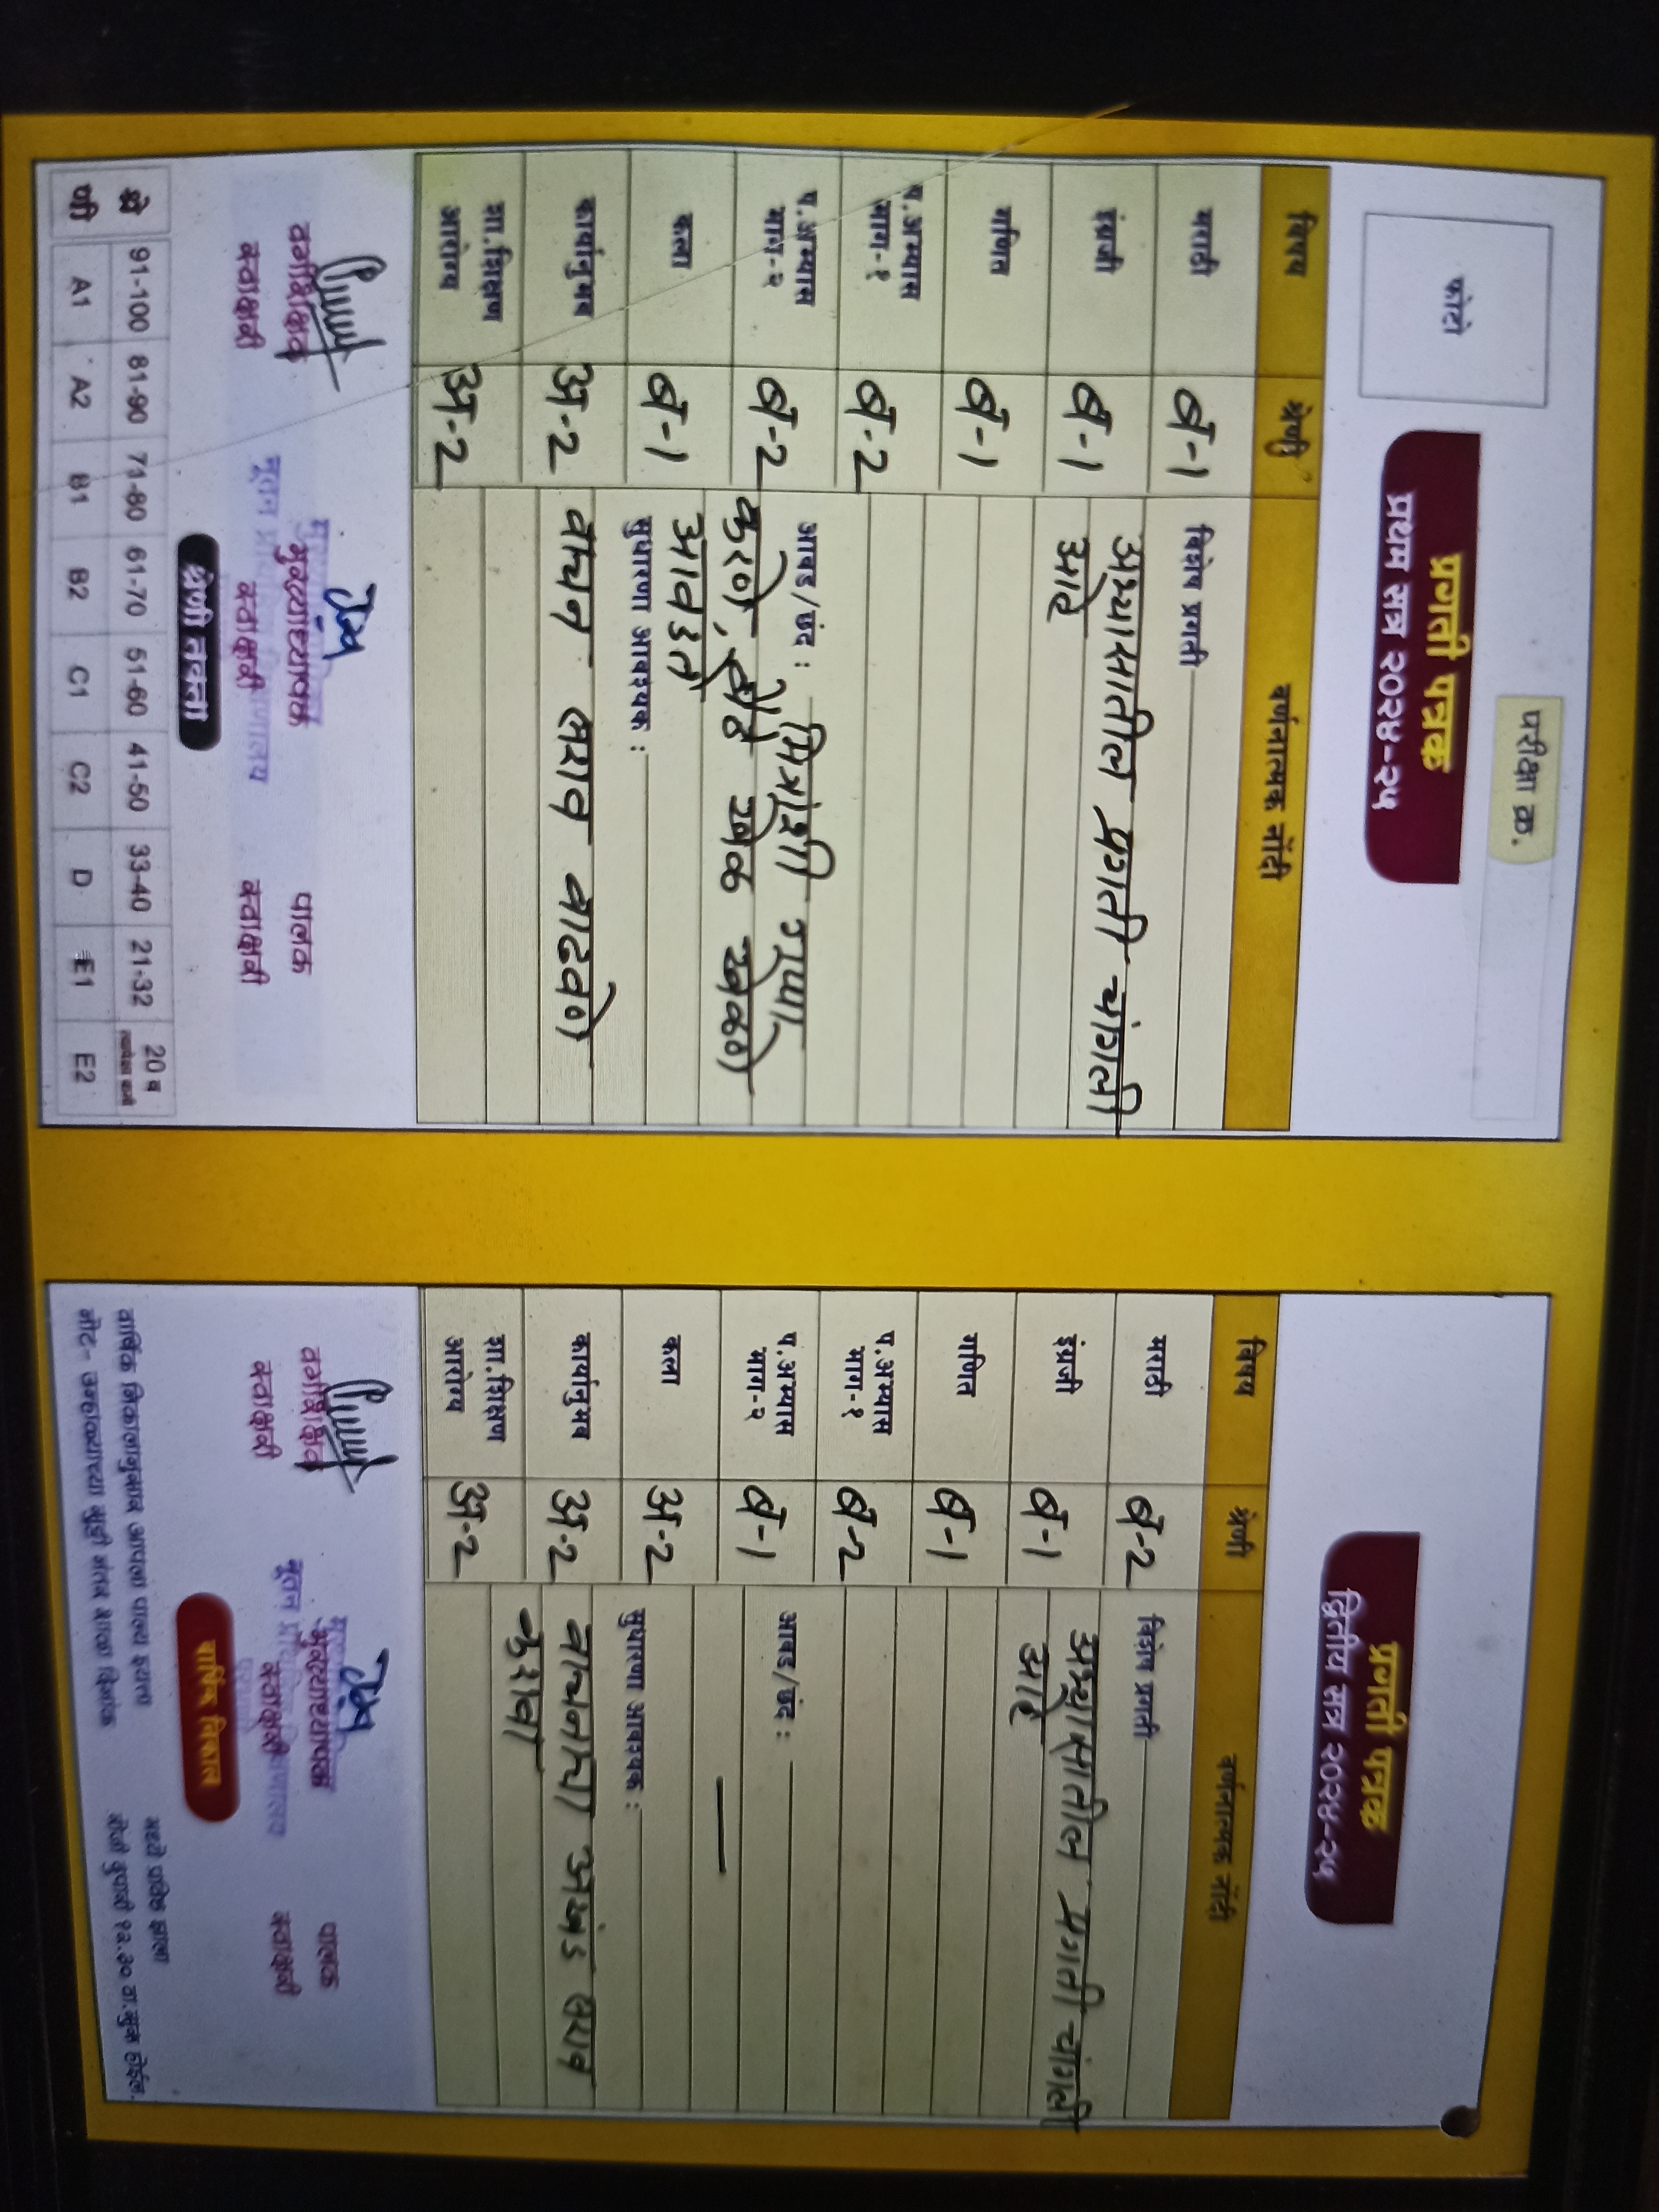 परीक्षा क्र.
फोटो
प्रगती पत्रक
प्रथम सत्र २०२४-२५
विषय श्रेणी वर्णनात्मक नोंदी
मराठी ब-1
इंग्रजी ब-1
गणित ब-1
प.अभ्यास भाग-१ ब-2
प.अभ्यास भाग-२ ब-2
कला ब-1
कार्यानुभव अ-2
शा.शिक्षण आरोग्य अ-2
विशेष प्रगती
अभ्यासातील प्रगती चांगली
आहे
आवड/छंद : मित्रांशी गप्पा
करणे, खेळ खेळणे
आवडते
सुधारणा आवश्यक :
वाचन सराव वाढवणे
वर्गशिक्षक मुख्याध्यापक पालक
स्वाक्षरी स्वाक्षरी स्वाक्षरी
श्रेणी तक्ता
क्षे 91-100 81-90 71-80 61-70 51-60 41-50 33-40 21-32 20 व
A1 A2 B1 B2 C1 C2 D E1 E2
प्रगती पत्रक
द्वितीय सत्र २०२४-२५
विषय श्रेणी वर्णनात्मक नोंदी
मराठी ब-2
इंग्रजी ब-1
गणित ब-1
प.अभ्यास भाग-१ ब-2
प.अभ्यास भाग-२ ब-1
कला अ-2
कार्यानुभव अ-2
शा.शिक्षण आरोग्य अ-2
विशेष प्रगती
अभ्यासातील प्रगती चांगली
आहे
आवड/छंद :
सुधारणा आवश्यक :
वाचनाचा अखंड सराव
करावा
वर्गशिक्षक मुख्याध्यापक पालक
स्वाक्षरी स्वाक्षरी स्वाक्षरी
वार्षिक निकाल
वार्षिक निकालानुसार आपला पाल्य इयत्ता
नोट- उन्हाळ्याच्या सुट्टी नंतर शाळा दिनांक रोजी दुपारी १२.३० वा.सुरू होईल.